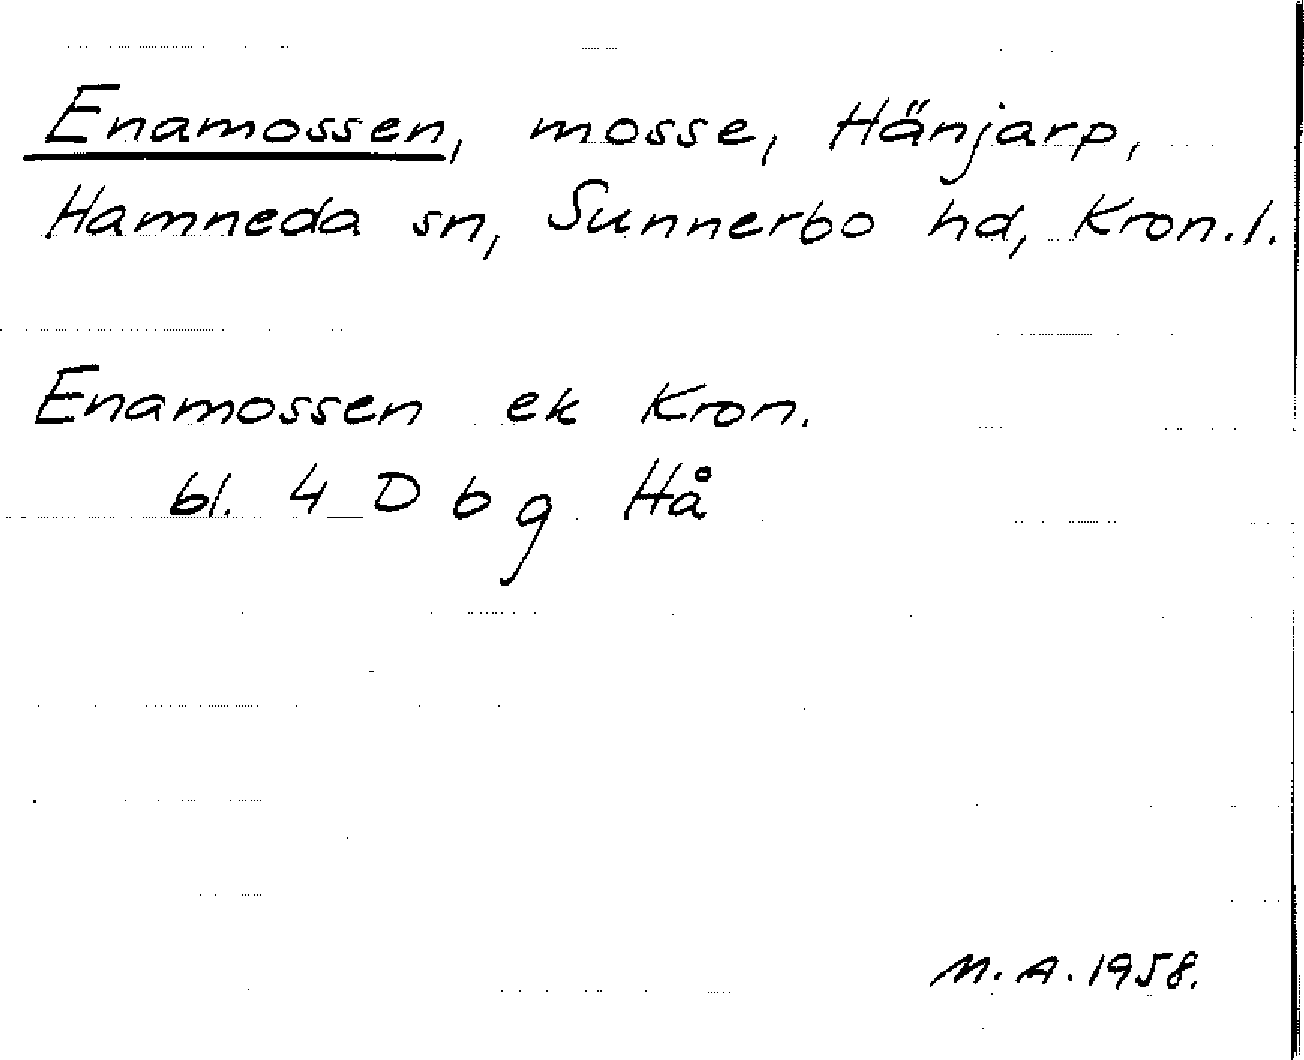 Enamossen, mosse, Hänjarp,
Hamneda sn, Sunnerbo hd, Kron.l.
Enamossen ek Kron.
bl. 4 D b g Hå
M.A. 1958.